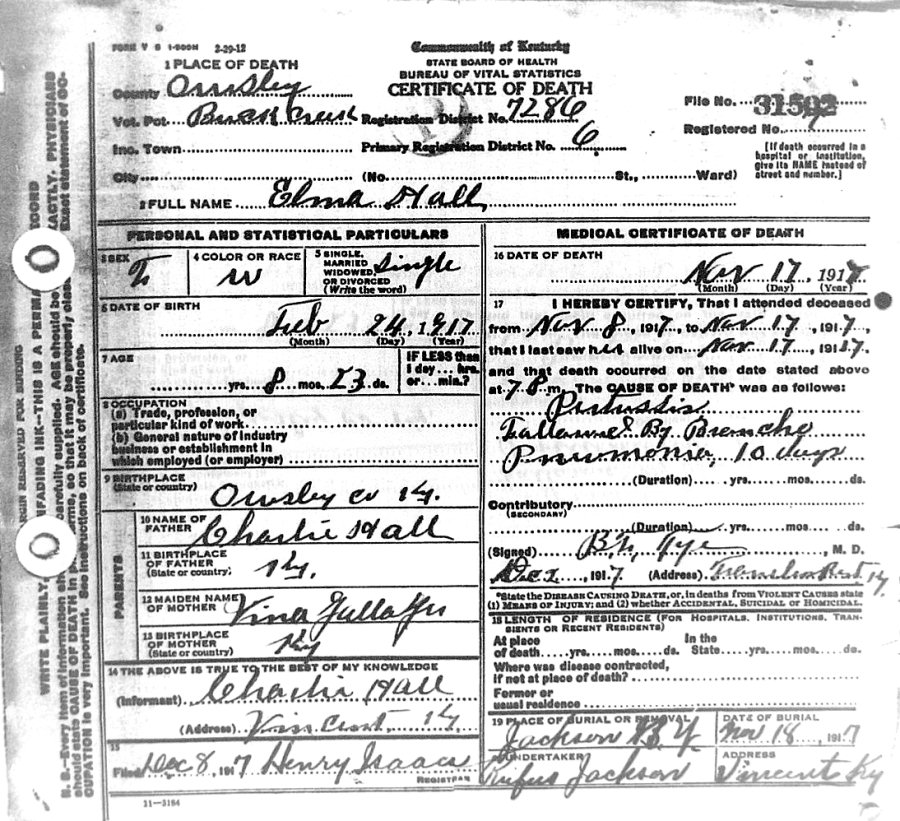 FORM V S 1-500M 2-29-12
Commonwealth of Kentucky
STATE BOARD OF HEALTH
BUREAU OF VITAL STATISTICS
CERTIFICATE OF DEATH
1 PLACE OF DEATH
County Owsley
Vot. Pct. Buck Creek Registration District No. 7286
File No. 31502
Inc. Town Primary Registration District No. 6
Registered No. 9
City (No. St., Ward)
[If death occurred in a
hospital or institution,
give its NAME instead of
street and number.]
2 FULL NAME Elma Hall
PERSONAL AND STATISTICAL PARTICULARS
3 SEX F
4 COLOR OR RACE W
5 SINGLE,
MARRIED
WIDOWED,
OR DIVORCED
(Write the word) Single
6 DATE OF BIRTH
Feb 24, 1917
(Month) (Day) (Year)
7 AGE
yrs. 8 mos. 23 ds.
IF LESS than
1 day ... hrs.
or ... min.?
8 OCCUPATION
(a) Trade, profession, or
particular kind of work
(b) General nature of industry
business or establishment in
which employed (or employer)
9 BIRTHPLACE
(State or country) Owsley co Ky.
PARENTS
10 NAME OF
FATHER Charlie Hall
11 BIRTHPLACE
OF FATHER
(State or country) Ky.
12 MAIDEN NAME
OF MOTHER Vina
13 BIRTHPLACE
OF MOTHER
(State or country) Ky
14 THE ABOVE IS TRUE TO THE BEST OF MY KNOWLEDGE
(Informant) Charlie Hall
(Address) Vincent, Ky
15
Filed Dec 8, 1917 Henry Isaacs
REGISTRAR
11-3184
MEDICAL CERTIFICATE OF DEATH
16 DATE OF DEATH
Nov 17, 1917
(Month) (Day) (Year)
17 I HEREBY CERTIFY, That I attended deceased
from Nov 8, 1917, to Nov 17, 1917,
that I last saw her alive on Nov 17, 1917.
and that death occurred on the date stated above
at 7 P m. The CAUSE OF DEATH* was as follows:
Pertussis
Followed By Broncho
Pnumonia, 10 days
(Duration) yrs. mos. ds.
Contributory
(SECONDARY)
(Duration) yrs. mos. ds.
(Signed) , M. D.
Dec 1917 (Address) Ky
*State the DISEASE CAUSING DEATH, or, in deaths from VIOLENT CAUSES state
(1) MEANS OF INJURY; and (2) whether ACCIDENTAL, SUICIDAL or HOMICIDAL.
18 LENGTH OF RESIDENCE (FOR HOSPITALS, INSTITUTIONS, TRAN-
SIENTS OR RECENT RESIDENTS)
At place In the
of death yrs. mos. ds. State yrs. mos. ds.
Where was disease contracted,
if not at place of death?
Former or
usual residence
19 PLACE OF BURIAL OR REMOVAL
Jackson B Y
DATE OF BURIAL
Nov 18, 1917
UNDERTAKER
Rufus Jackson
ADDRESS
Vincent Ky
MARGIN RESERVED FOR BINDING